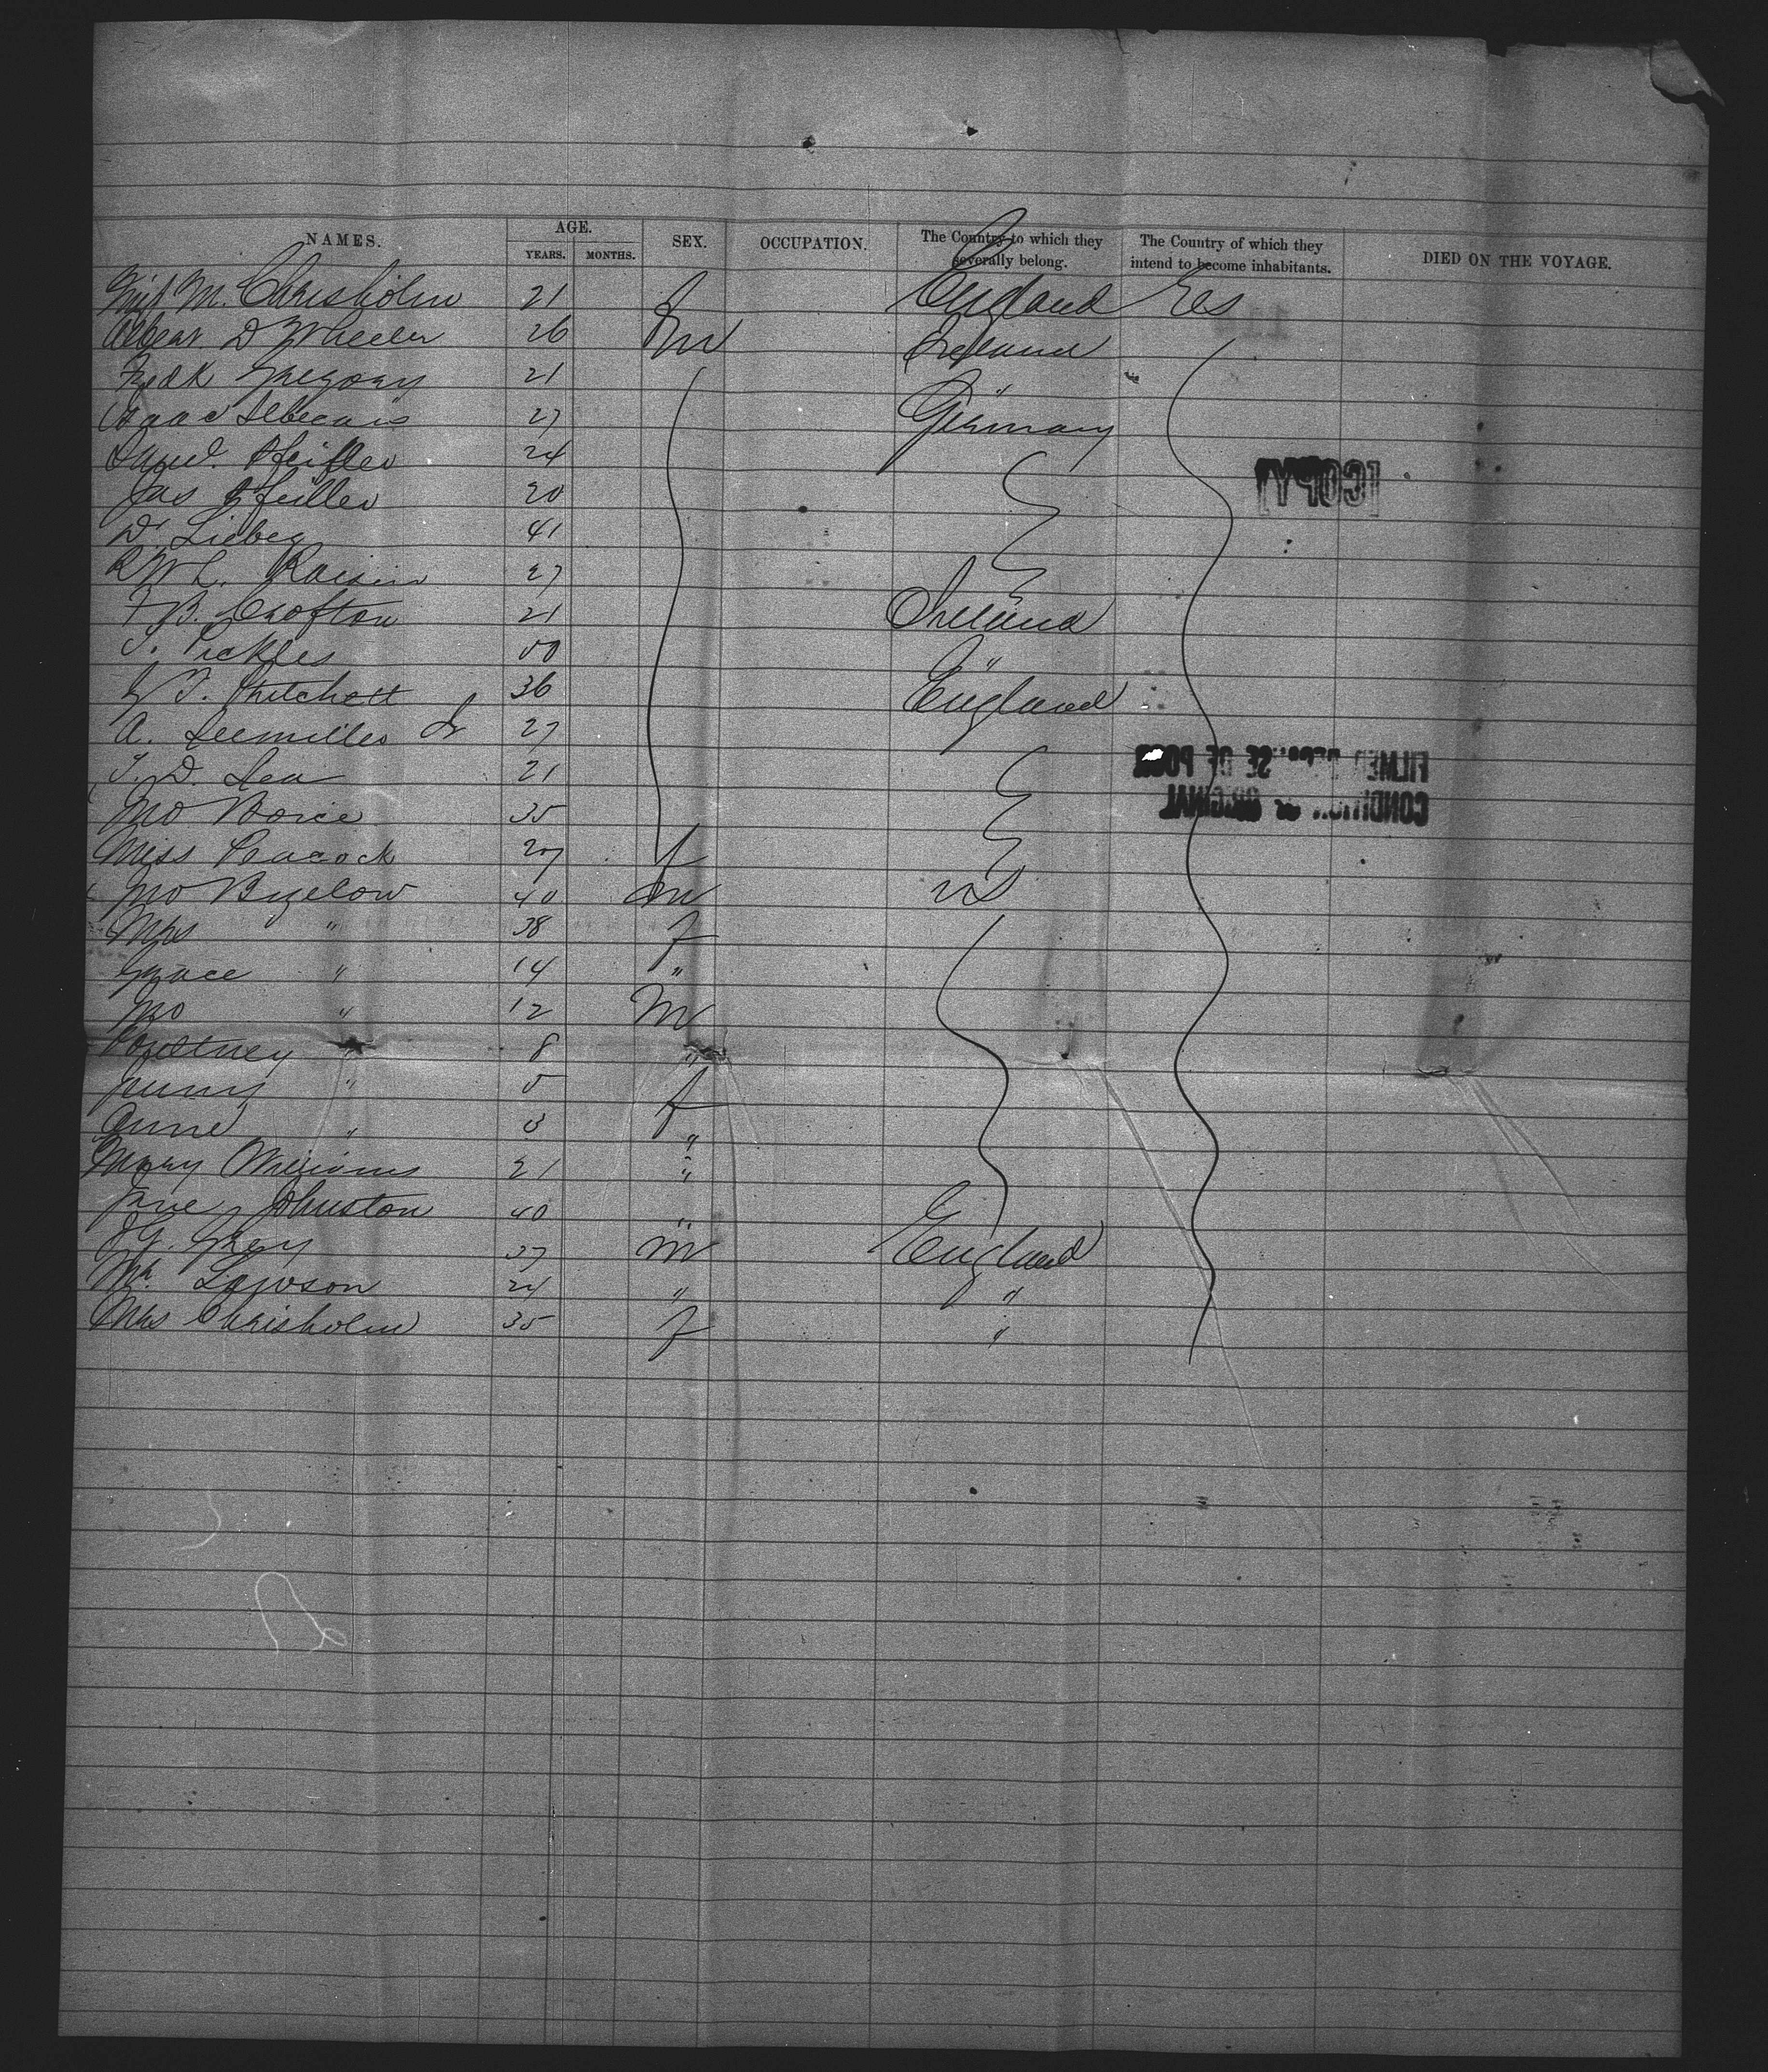 NAMES. AGE. SEX. OCCUPATION. The Country to which they severally belong. The Country of which they intend to become inhabitants. DIED ON THE VOYAGE.
YEARS. MONTHS.
Miss M. Chrisholm 21 f England
Albert D Wheeler 26 m Ireland
Fredk Gregory 21 "
Isaac 27 Germany
Saml. Pfeiffer 24
Jas Pfeiffer 20
D. Liebeg 41
R W L. Raisin 27
F B. Crofton 21 Ireland
T. Pickles 50 "
T. Mitchell 36 England
A. Seemiller Jr 27
T. D. Lea 21
Jno Borice 35
Miss Peacock 27 f
Jno Bigelow 40 m US
Mrs " 38 f
Grace " 14 "
Jno " 12 m
Poultney " 8 "
Jenny " 5 f
Annie " 3 "
Mary Williams 21 "
Jane Johnston 40 "
J G. Grey 37 m England
Mr. Lawson 24 " "
Mrs Chrisholm 35 f "
[COPY]
CONDITION OF ORIGINAL